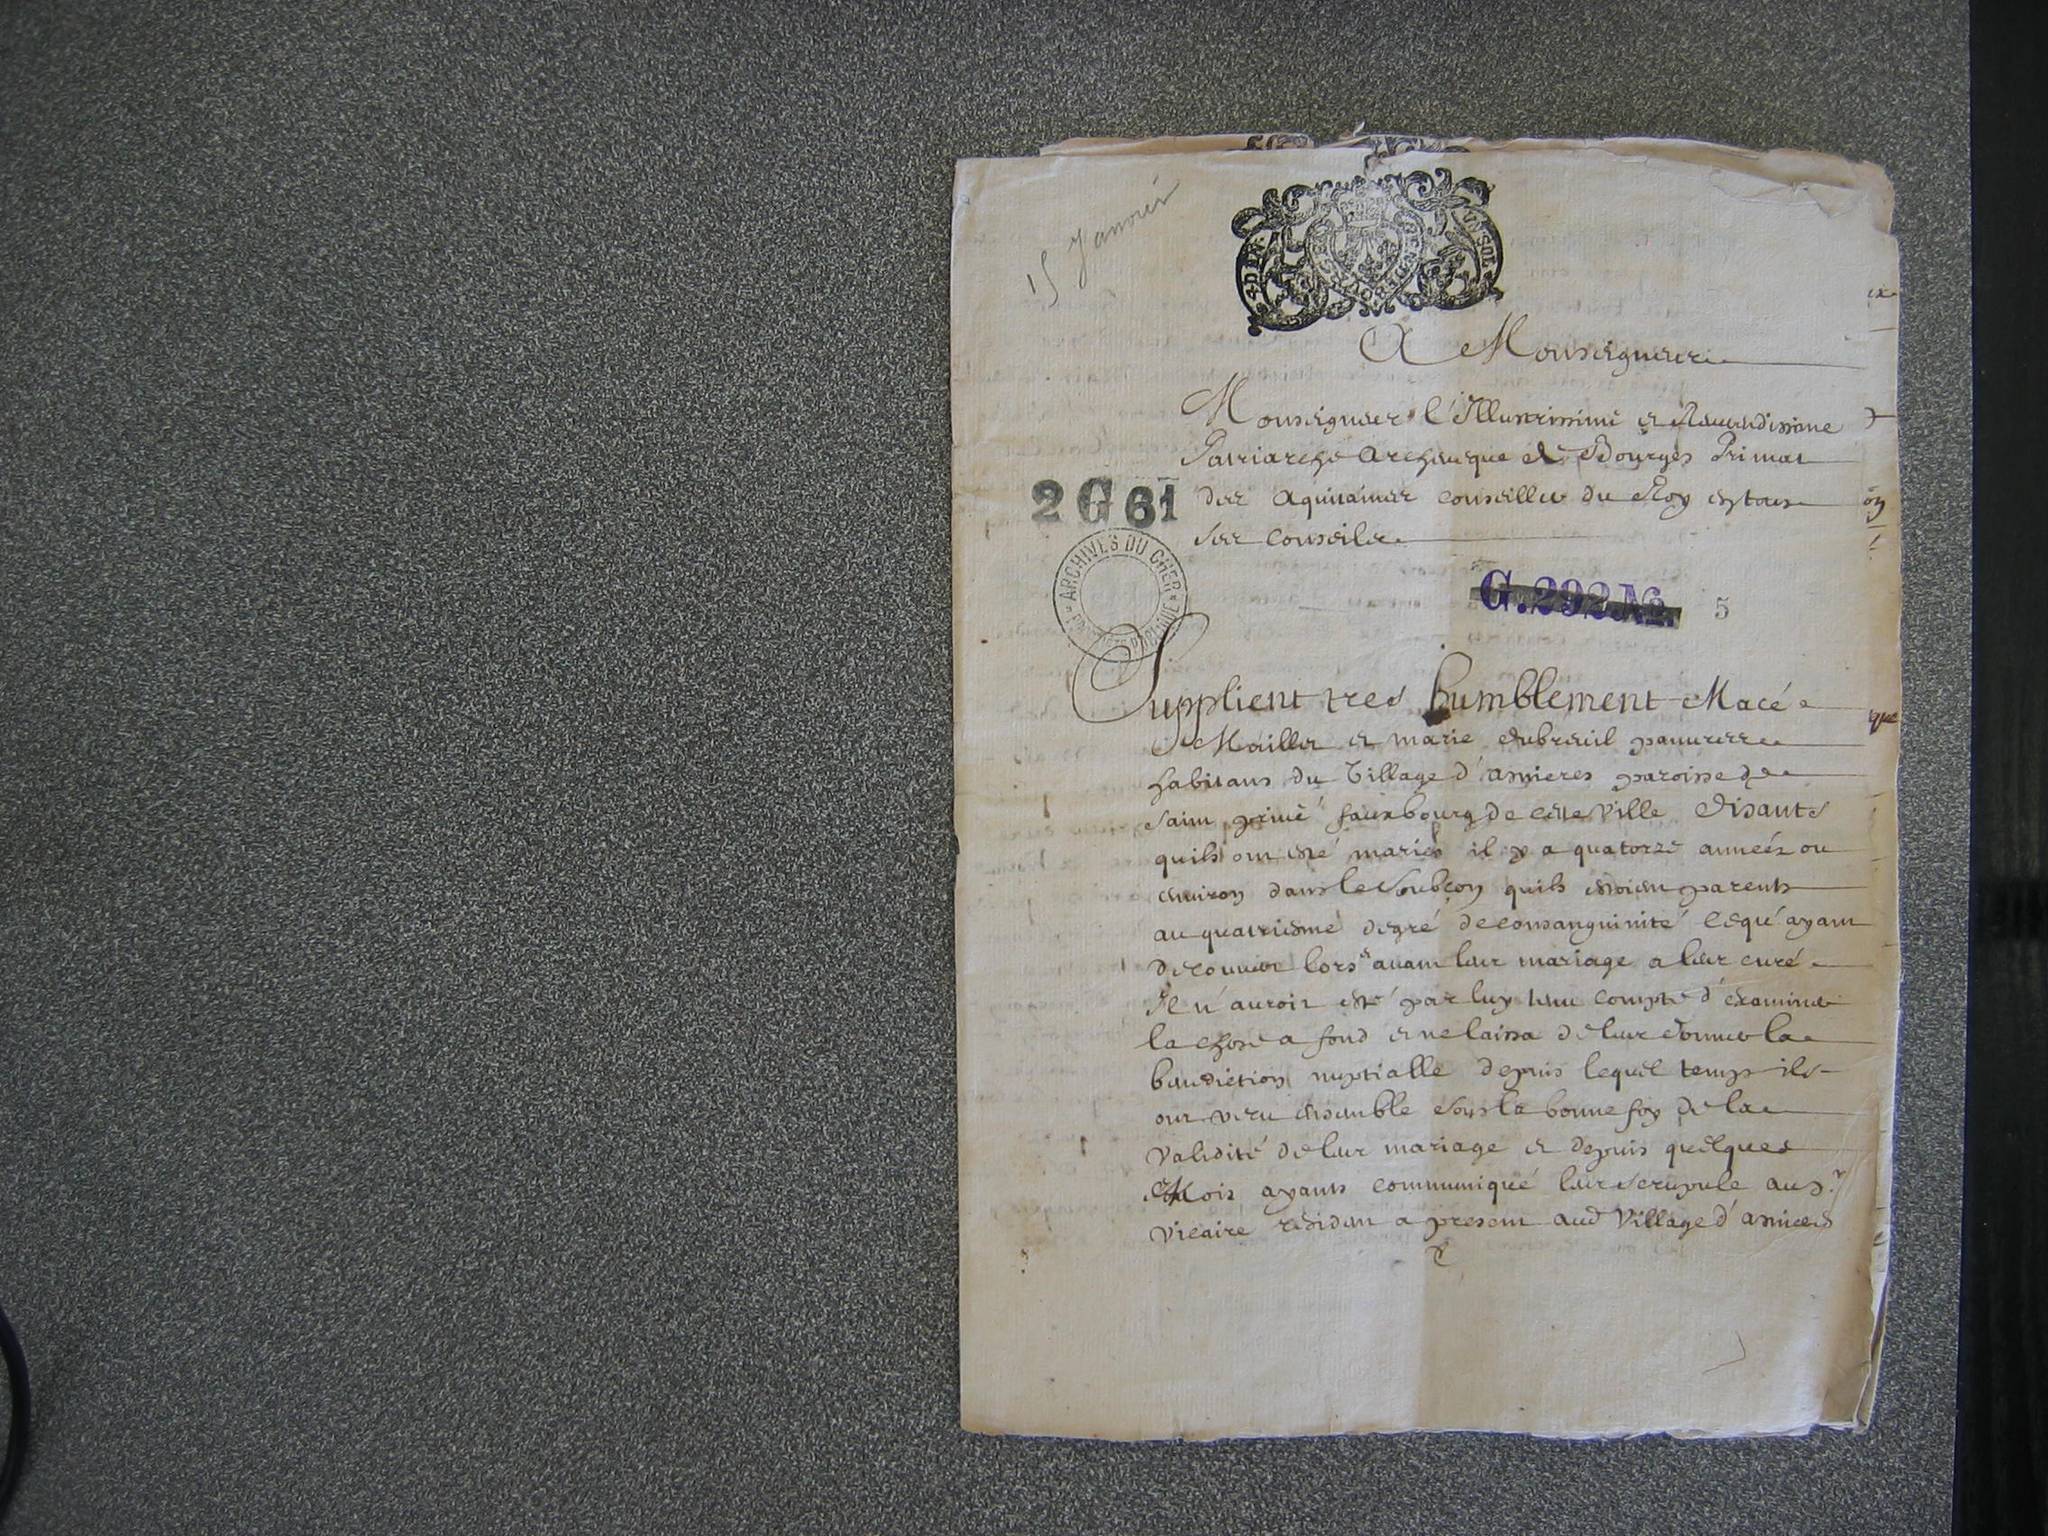 15 Janvier
UN SOL
A Monseigneur
Monseigneur l'Illustrissime et Reverendissime
Patriarche Archevesque de Bourges Primat
des Aquitaines conseiller du Roy en tous
ses conseils
2 G 61
ARCHIVES DU CHER
G.292.No. 5
Supplient tres humblement Macé
Maillet et marie dubreuil pauvres
habitans du Village d'asnieres paroisse de
saint privé fauxbourg de cette Ville Disants
quils ont esté mariés il y a quatorze années ou
environ dans le soubçon quils estoient parents
au quatriesme degré de consanguinité ce qu'ayant
decouvert lors et avant leur mariage a leur curé
Il n'auroit esté par luy tenu compte d'examiner
la chose a fond et ne laissa de leur donner la
benediction nuptialle depuis lequel temps ils
ont vecu ensemble sous la bonne foy de la
validité de leur mariage et depuis quelques
Mois ayants communiqué leur scrupule au sr
vicaire residant a present aud Village d'asnieres